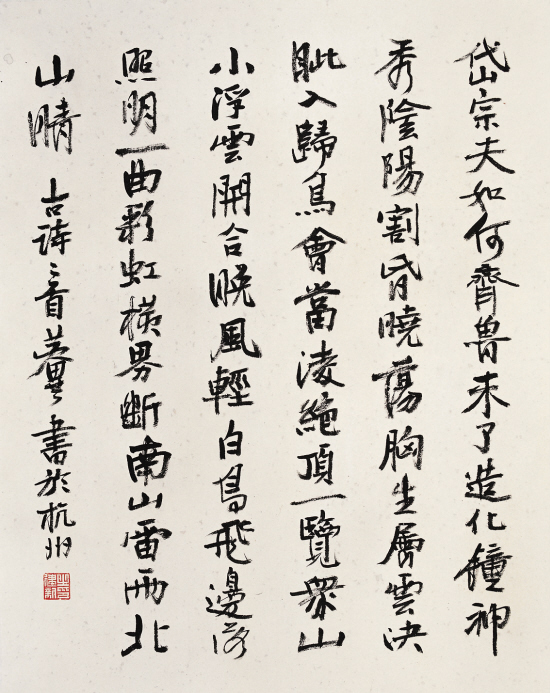 岱宗夫如何齊魯未了造化鐘神
秀陰陽割昏曉蕩胸生層雲決
眦入歸鳥會當淩絕頂一覽眾山
小浮雲開合晚風輕白鳥飛邊落
照明一曲彩虹橫界斷南山雷雨北
山晴 古詩二首 書於杭州